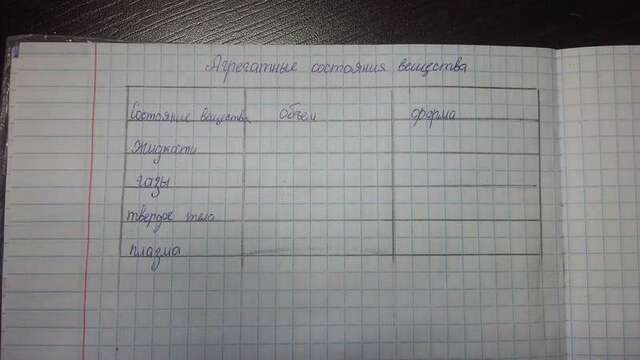 Агрегатные состояния вещества
Состояние вещества Объем форма
Жидкости
газы
твердое тело
плазма